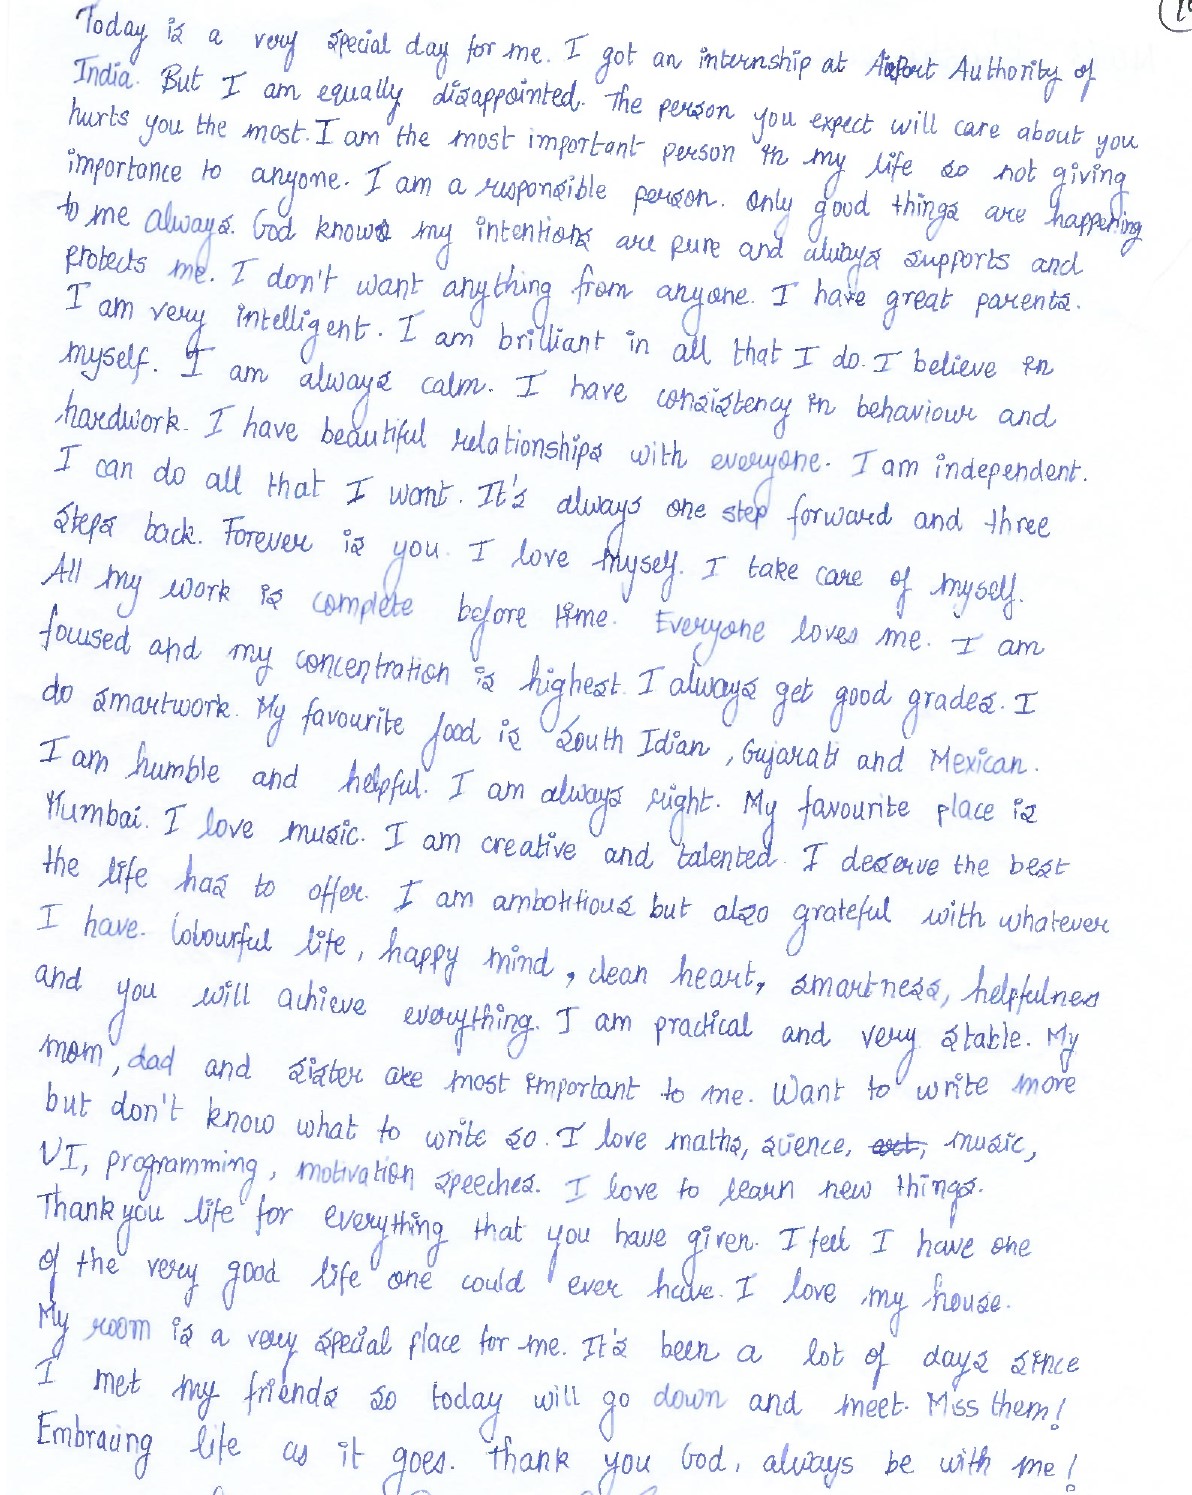 Today is a very special day for me. I got an internship at Airport Authority of
India. But I am equally disappointed. The person you expect will care about you
hurts you the most. I am the most important person in my life so not giving
importance to anyone. I am a responsible person. Only good things are happening
to me always. God knows my intentions are pure and always supports and
protects me. I don't want anything from anyone. I have great parents.
I am very intelligent. I am brilliant in all that I do. I believe in
myself. I am always calm. I have consistency in behaviour and
hardwork. I have beautiful relationships with everyone. I am independent.
I can do all that I want. It's always one step forward and three
steps back. Forever is you. I love myself. I take care of myself.
All my work is complete before time. Everyone loves me. I am
focused and my concentration is highest. I always get good grades. I
do smartwork. My favourite food is South Idian, Gujarati and Mexican.
I am humble and helpful. I am always right. My favourite place is
Mumbai. I love music. I am creative and talented. I deserve the best
the life has to offer. I am ambotitious but also grateful with whatever
I have. Colourful life, happy mind, clean heart, smartness, helpfulness
and you will achieve everything. I am practical and very stable. My
mom, dad and sister are most important to me. Want to write more
but don't know what to write so. I love maths, science, art, music,
VI, programming, motivation speeches. I love to learn new things.
Thank you life for everything that you have given. I feel I have one
of the very good life one could ever have. I love my house.
My room is a very special place for me. It's been a lot of days since
I met my friends so today will go down and meet. Miss them!
Embracing life as it goes. Thank you God, always be with me!